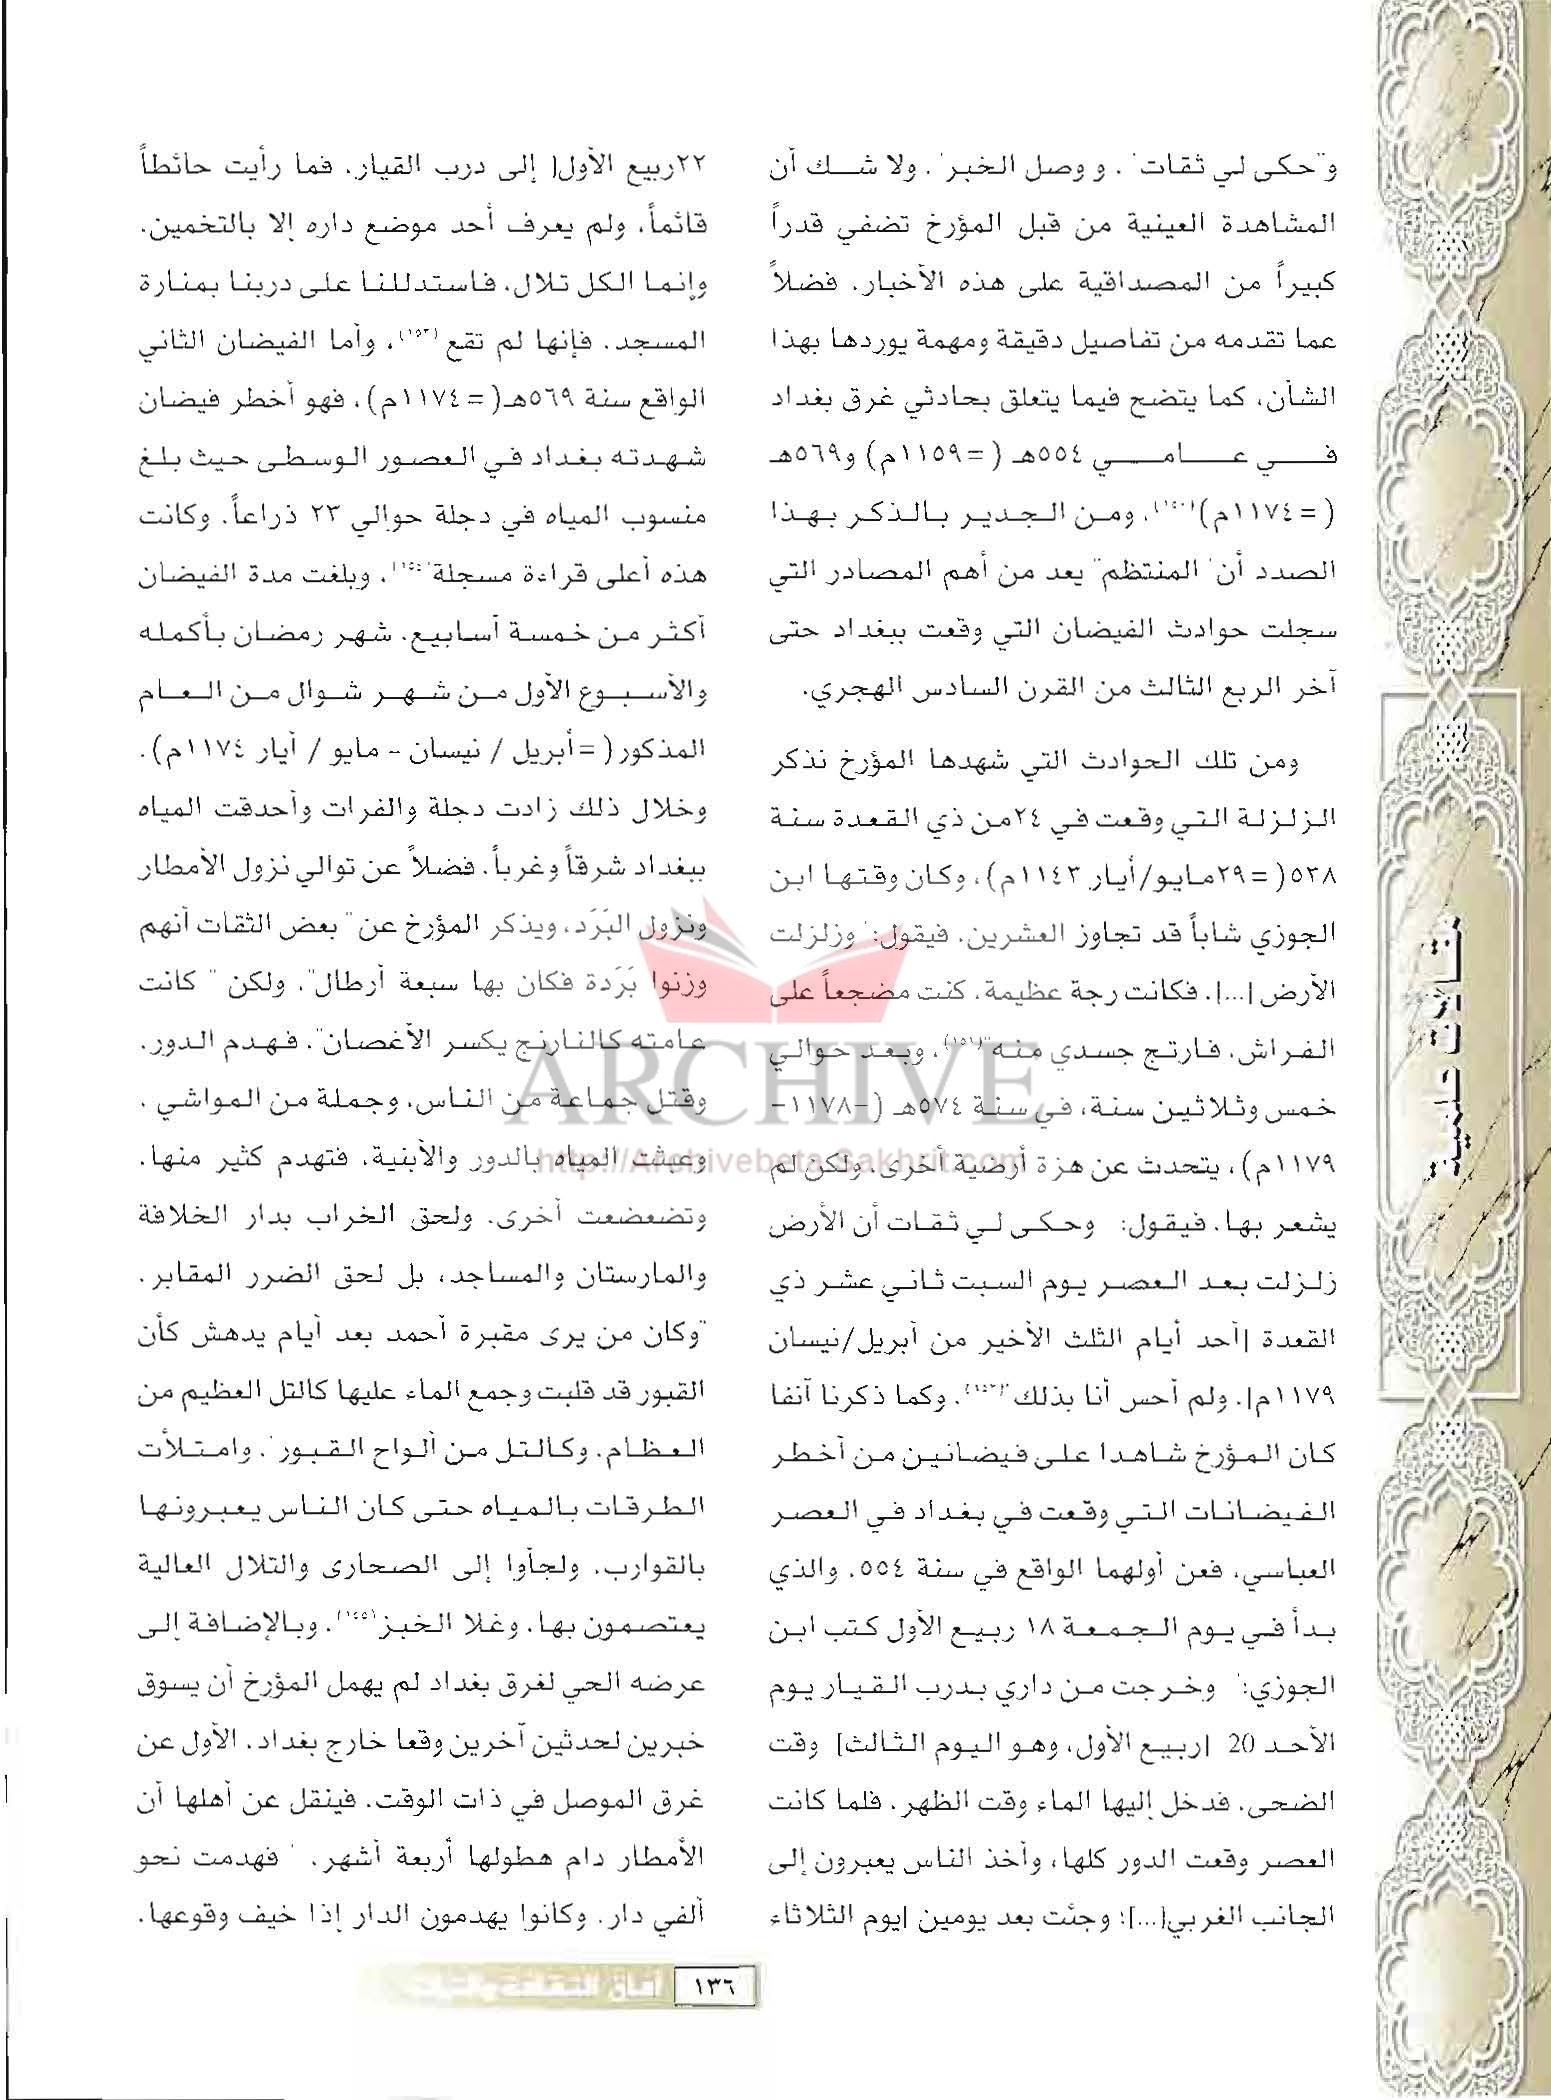 و"حكى لي ثقات". و ووصل الخبر". ولا شك أن
المشاهدة العينية من قبل المؤرخ تضفي قدراً
كبيراً من المصداقية على هذه الأخبار. فضلاً
عما تقدمه من تفاصيل دقيقة ومهمة يوردها بهذا
الشأن، كما يتضح فيما يتعلق بحادثي غرق بغداد
في عامي ٥٥٤هـ (=١١٥٩م) و٥٦٩هـ
(=١١٧٤م). ومن الجدير بالذكر بهذا
الصدد أن "المنتظم" يعد من أهم المصادر التي
سجلت حوادث الفيضان التي وقعت ببغداد حتى
آخر الربع الثالث من القرن السادس الهجري.
ومن تلك الحوادث التي شهدها المؤرخ نذكر
الزلزلة التي وقعت في ٢٤من ذي القعدة سنة
٥٣٨(=٢٩مايو/أيار ١١٤٣م)، وكان وقتها ابن
الجوزي شاباً قد تجاوز العشرين. فيقول:" وزلزلت
الأرض [...]. فكانت رجة عظيمة. كنت مضجعاً على
الفراش. فارتج جسدي منه". وبعد حوالي
خمس وثلاثين سنة، في سنة ٥٧٤هـ (-١١٧٨-
١١٧٩م)، يتحدث عن هزة أرضية أخرى. ولكن لم
يشعر بها. فيقول: وحكى لي ثقات أن الأرض
زلزلت بعد العصر يوم السبت ثاني عشر ذي
القعدة [أحد أيام الثلث الأخير من أبريل/نيسان
١١٧٩م]. ولم أحس أنا بذلك". وكما ذكرنا آنفا
كان المؤرخ شاهدا على فيضانين من أخطر
الفيضانات التي وقعت في بغداد في العصر
العباسي، فعن أولهما الواقع في سنة ٥٥٤. والذي
بدأ في يوم الجمعة ١٨ ربيع الأول كتب ابن
الجوزي:" وخرجت من داري بدرب القيار يوم
الأحد 20 [ربيع الأول، وهو اليوم الثالث] وقت
الضحى. فدخل إليها الماء وقت الظهر. فلما كانت
العصر وقعت الدور كلها، وأخذ الناس يعبرون إلى
الجانب الغربي[...]؛ وجئت بعد يومين [يوم الثلاثاء
٢٢ربيع الأول] إلى درب القيار. فما رأيت حائطاً
قائماً، ولم يعرف أحد موضع داره إلا بالتخمين.
وإنما الكل تلال. فاستدللنا على دربنا بمنارة
المسجد. فإنها لم تقع (١٥٣)، وأما الفيضان الثاني
الواقع سنة ٥٦٩هـ(=١١٧٤م). فهو أخطر فيضان
شهدته بغداد في العصور الوسطى حيث بلغ
منسوب المياه في دجلة حوالي ٢٣ ذراعاً. وكانت
هذه أعلى قراءة مسجلة. وبلغت مدة الفيضان
أكثر من خمسة أسابيع. شهر رمضان بأكمله
والأسبوع الأول من شهر شوال من العام
المذكور(=أبريل / نيسان - مايو / أيار ١١٧٤م).
وخلال ذلك زادت دجلة والفرات وأحدقت المياه
ببغداد شرقاً وغرباً. فضلاً عن توالي نزول الأمطار
ونزول البَرَد، ويذكر المؤرخ عن "بعض الثقات أنهم
وزنوا بَرَدة فكان بها سبعة أرطال". ولكن " كانت
عامته كالنارنج يكسر الأغصان". فهدم الدور.
وقتل جماعة من الناس، وجملة من المواشي.
وعبثت المياه بالدور والأبنية. فتهدم كثير منها.
وتضعضعت أخرى. ولحق الخراب بدار الخلافة
والمارستان والمساجد، بل لحق الضرر المقابر.
"وكان من يرى مقبرة أحمد بعد أيام يدهش كأن
القبور قد قلبت وجمع الماء عليها كالتل العظيم من
العظام. وكالتل من ألواح القبور". وامتلأت
الطرقات بالمياه حتى كان الناس يعبرونها
بالقوارب. ولجأوا إلى الصحارى والتلال العالية
يعتصمون بها. وغلا الخبز (١٤٥). وبالإضافة إلى
عرضه الحي لغرق بغداد لم يهمل المؤرخ أن يسوق
خبرين لحدثين آخرين وقعا خارج بغداد. الأول عن
غرق الموصل في ذات الوقت. فينقل عن أهلها أن
الأمطار دام هطولها أربعة أشهر. " فهدمت نحو
ألفي دار. وكانوا يهدمون الدار إذا خيف وقوعها.
مقالات علمية
ARCHIVE
http://Archivebeta.Sakhrit.com
١٣٦ آفاق الثقافة والتراث